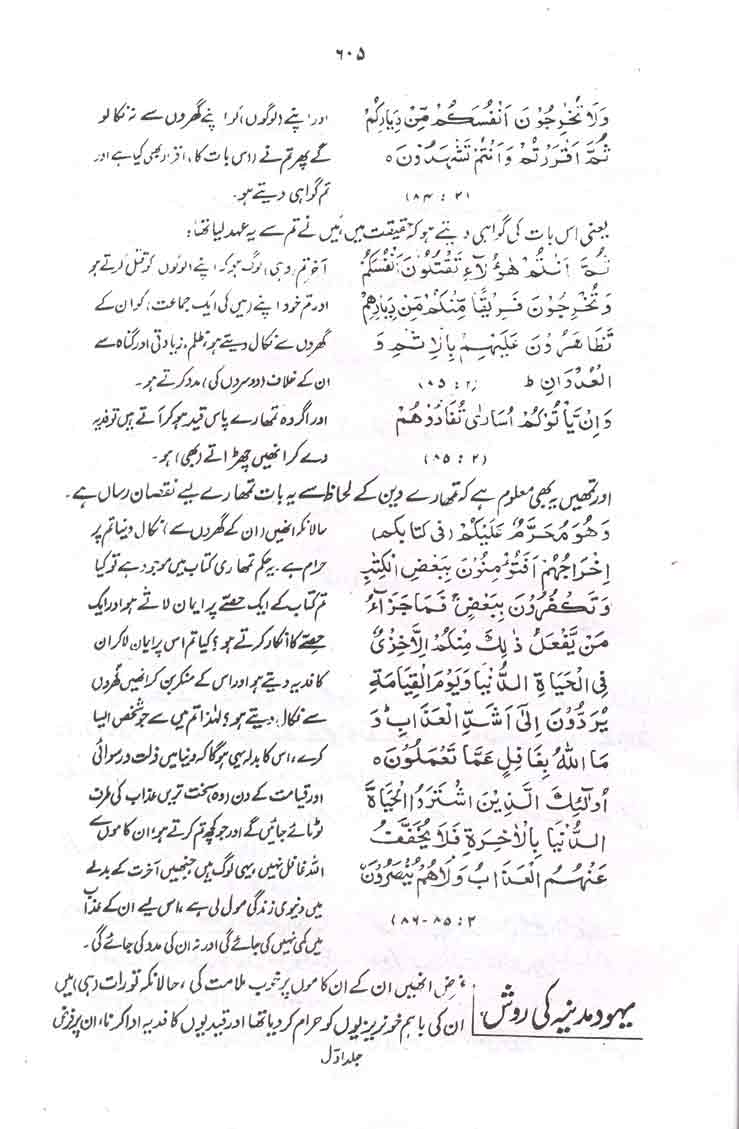 ۶۰۵
وَلَا تُخْرِجُوْنَ اَنْفُسَكُمْ مِّنْ دِيَارِكُمْ
ثُمَّ اَقْرَرْتُمْ وَاَنْتُمْ تَشْهَدُوْنَ ہ
(۲ : ۸۴)
اور اپنے (لوگوں) کو اپنے گھروں سے نہ نکالو
گے پھر تم نے (اس بات کا) اقرار بھی کیا ہے اور
تم گواہی دیتے ہو۔
یعنی اس بات کی گواہی دیتے ہو کہ حقیقت میں، میں نے تم سے یہ عہد لیا تھا:
ثُمَّ اَنْتُمْ هٰؤُلَآءِ تَقْتُلُوْنَ اَنْفُسَكُمْ
وَتُخْرِجُوْنَ فَرِيْقًا مِّنْكُمْ مِنْ دِيَارِهِمْ
تَظَاهَرُوْنَ عَلَيْهِمْ بِالْاِثْمِ وَ
الْعُدْوَانِ ط (۲ : ۸۵)
وَاِنْ يَّاْتُوْكُمْ اُسَارٰى تُفَادُوْهُمْ
(۲ : ۸۵)
آخر تم (وہی) لوگ ہو کہ اپنے لوگوں کو قتل کرتے ہو
اور تم خود اپنے (میں کی ایک جماعت) کو ان کے
گھروں سے نکال دیتے ہو، ظلم، زیادتی اور گناہ سے
ان کے خلاف (دوسروں کی) مدد کرتے ہو۔
اور اگر وہ تمھارے پاس قید ہو کر آتے ہیں تو فدیہ
دے کر انھیں چھڑاتے (بھی) ہو۔
اور تمھیں یہ بھی معلوم ہے کہ تمھارے دین کے لحاظ سے یہ بات تمھارے لیے نقصان رساں ہے۔
وَهُوَ مُحَرَّمٌ عَلَيْكُمْ (فی کتابکم)
اِخْرَاجُهُمْ اَفَتُؤْمِنُوْنَ بِبَعْضِ الْكِتٰبِ
وَتَكْفُرُوْنَ بِبَعْضٍ فَمَا جَزَآءُ
مَنْ يَّفْعَلُ ذٰلِكَ مِنْكُمْ اِلَّا خِزْيٌ
فِى الْحَيَاةِ الدُّنْيَا وَيَوْمَ الْقِيَامَةِ
يُرَدُّوْنَ اِلٰى اَشَدِّ الْعَذَابِ وَ
مَا اللّٰهُ بِغَافِلٍ عَمَّا تَعْمَلُوْنَ ہ
اُولٰئِكَ الَّذِيْنَ اشْتَرَوُا الْحَيَاةَ
الدُّنْيَا بِالْاٰخِرَةِ فَلَا يُخَفَّفُ
عَنْهُمُ الْعَذَابُ وَلَا هُمْ يُنْصَرُوْنَ
۲ : ۸۵-۸۶)
حالانکہ انھیں (ان کے گھروں سے) نکال دینا تم پر
حرام ہے۔ یہ حکم تمھاری کتاب میں موجود ہے تو کیا
تم کتاب کے ایک حصّے پر ایمان لاتے ہو اور ایک
حصّے کا انکار کرتے ہو؟ کیا تم اس پر ایمان لا کر ان
کا فدیہ دیتے ہو اور اس کے منکر بن کر انھیں گھروں
سے نکال دیتے ہو؟ لہٰذا تم میں سے جو شخص ایسا
کرے، اس کا بدلہ یہی ہوگا کہ دنیا میں ذلت و رسوائی
اور قیامت کے دن (وہ) سخت ترین عذاب کی طرف
لوٹائے جائیں گے اور جو کچھ تم کرتے ہو، ان کاموں سے
اللہ غافل نہیں، یہی لوگ ہیں جنھیں آخرت کے بدلے
میں دنیوی زندگی مول لی ہے، اس لیے ان کے عذاب
میں کمی نہیں کی جائے گی اور نہ ان کی مدد کی جائے گی۔
یہود مدینہ کی روش
غرض انھیں ان کے ان کاموں پر خوب ملامت کی، حالانکہ تورات (ہی) میں
ان کی باہم خونریزیوں کو حرام کر دیا تھا اور قیدیوں کا فدیہ ادا کرنا، ان پر فرض
جلد اوّل